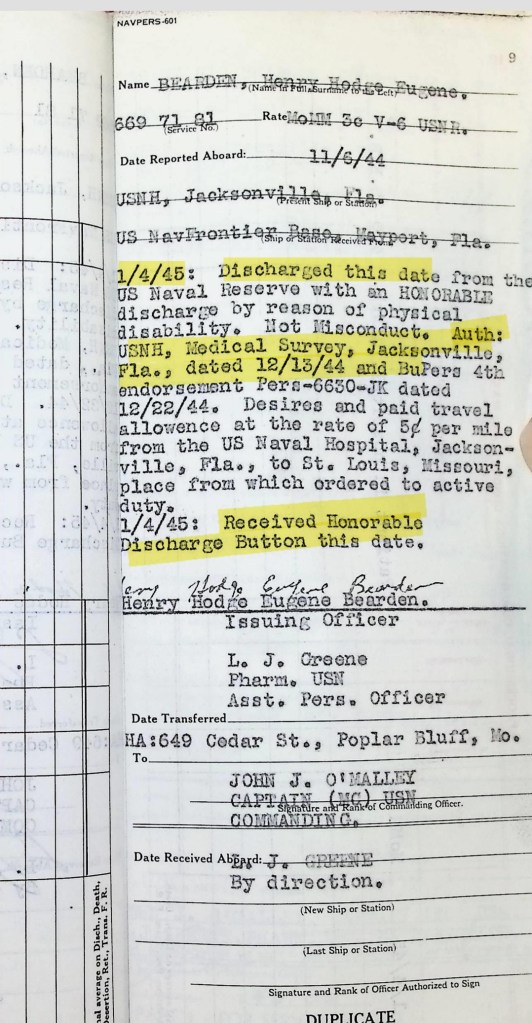 NAVPERS-601
9
Name BEARDEN, Henry Hodge Eugene.
(Name in Full, Surname to the Left)
669 71 81 Rate MoMM 3c V-6 USNR.
(Service No.)
Date Reported Aboard: 11/6/44
USNH, Jacksonville, Fla.
(Present Ship or Station)
US NavFrontier Base, Mayport, Fla.
(Ship or Station Received From)
1/4/45: Discharged this date from the
US Naval Reserve with an HONORABLE
discharge by reason of physical
disability. Not Misconduct. Auth:
USNH, Medical Survey, Jacksonville,
Fla., dated 12/13/44 and BuPers 4th
endorsement Pers-6630-JK dated
12/22/44. Desires and paid travel
allowence at the rate of 5¢ per mile
from the US Naval Hospital, Jackson-
ville, Fla., to St. Louis, Missouri,
place from which ordered to active
duty.
1/4/45: Received Honorable
Discharge Button this date.
Henry Hodge Eugene Bearden
Henry Hodge Eugene Bearden.
Issuing Officer
L. J. Greene
Pharm. USN
Asst. Pers. Officer
Date Transferred
HA:649 Cedar St., Poplar Bluff, Mo.
To
JOHN J. O'MALLEY
CAPTAIN (MC) USN
Signature and Rank of Commanding Officer.
COMMANDING.
Date Received Aboard: L. J. GREENE
By direction.
(New Ship or Station)
(Last Ship or Station)
Signature and Rank of Officer Authorized to Sign
DUPLICATE
nal average on Disch., Death,
Desertion, Ret., Trans. F. R.